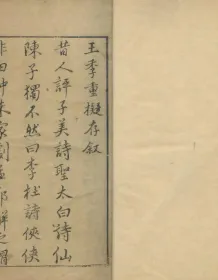 王季重擬存叙
昔人評子美詩聖太白詩仙
陳子獨不然曰李杜詩俠俠
非田仲朱家劇孟郭解之